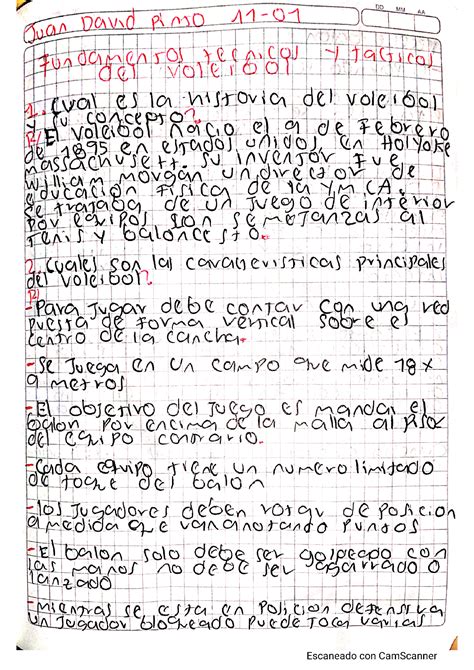 Juan David Pinso 11-01
DD MM AA
Fundamentos tecnicos y tacticos
del voleibol
1. Cual es la historia del voleibol
y su concepto?
R/ El voleibol nacio el 9 de Febrero
de 1895 en estados unidos, en Holyoke
Massachusett. su inventor fue
william morgan un director de
educacion fisica de la YMCA.
se trataba de un Juego de interior
por equipos son semejanzas al
tenis y baloncesto.
2. Cuales son las caracteristicas principales
del voleibol?
R/
-Para Jugar debe contar con una red
puesta de forma vertical sobre el
centro de la cancha.
-Se Juega en un campo que mide 18 x
9 metros
-El objetivo del Juego es mandar el
balon por encima de la malla al piso
del equipo contrario.
-Cada equipo tiene un numero limitado
de toque del balon
-los Jugadores deben rotar de posicion
a medida que van anotando puntos
-El balon solo debe ser golpeado con
las manos no debe ser agarrado o
lanzado
-mientras se esta en posicion defensiva
un Jugador bloqueado puede tocar varias
Escaneado con CamScanner